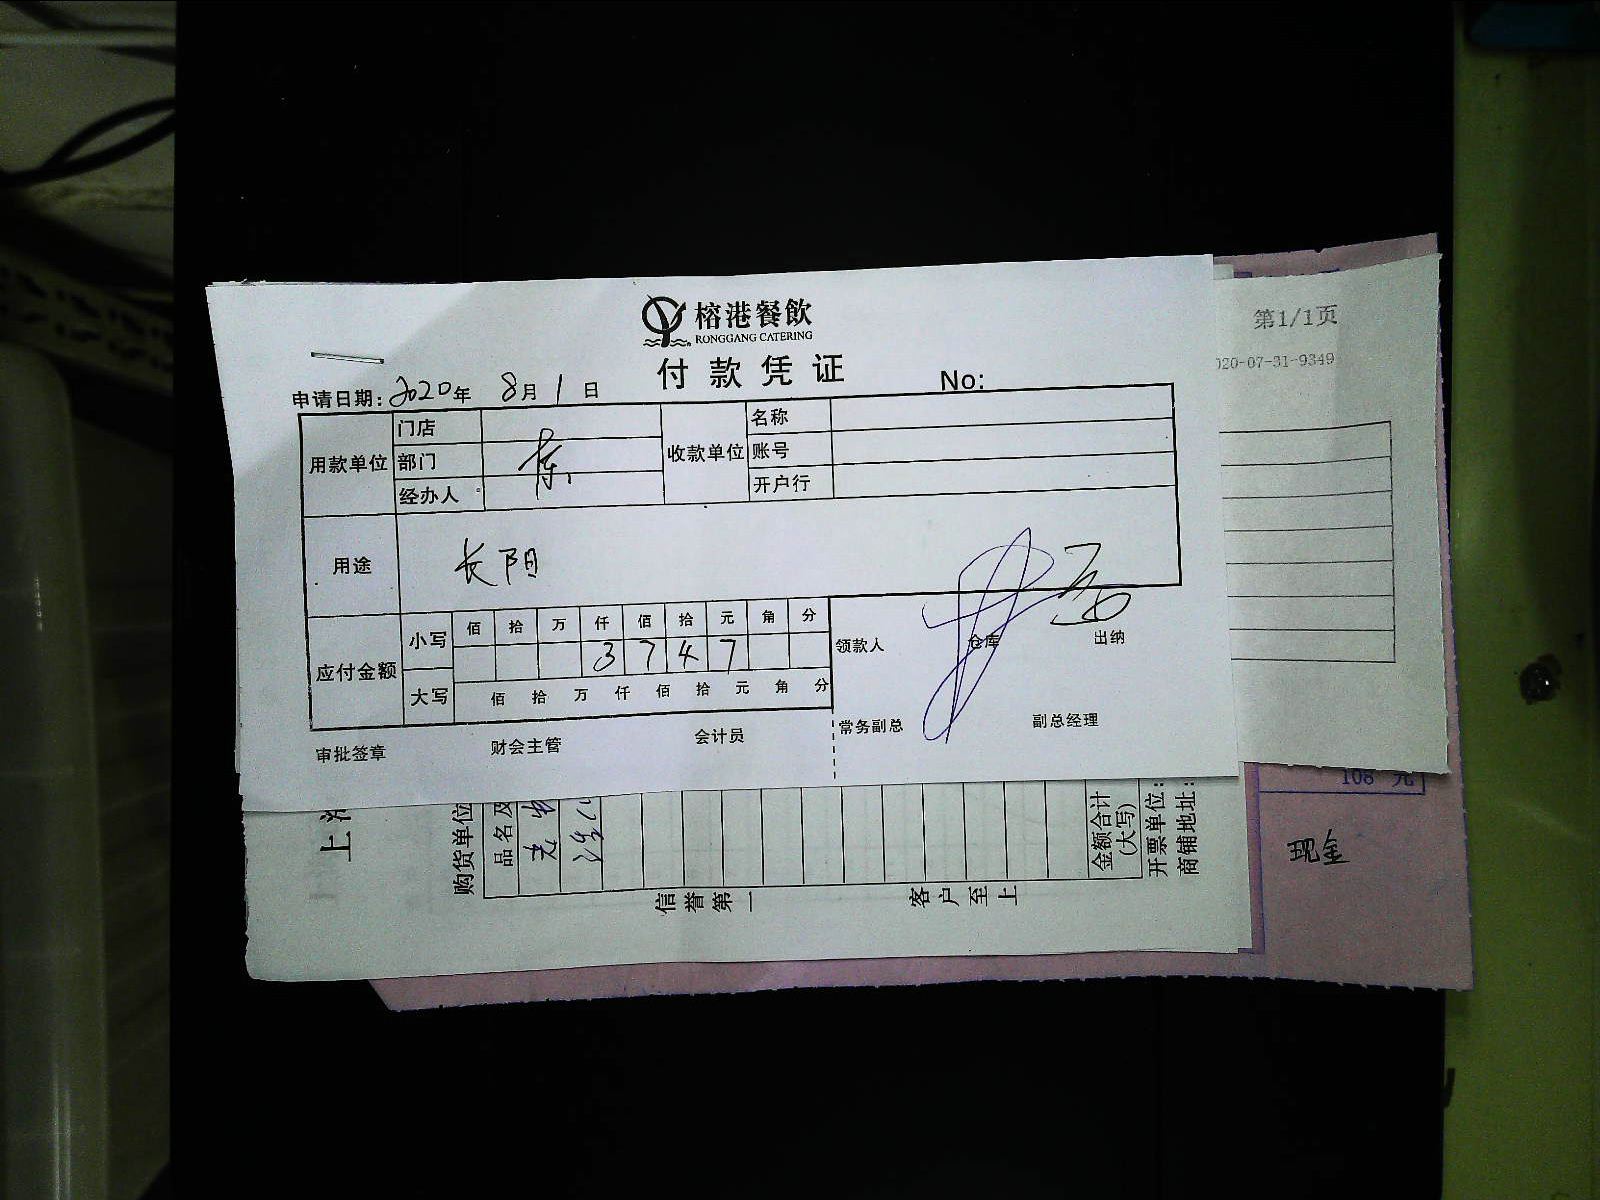 榕港餐飲
RONGGANG CATERING
付款凭证
申请日期: 2020年 8月 1日 No:
用款单位 门店 收款单位 名称
部门 账号
经办人 开户行
用途 长阳
应付金额 小写 佰 拾 万 仟 佰 拾 元 角 分
3 7 4 7
大写 佰 拾 万 仟 佰 拾 元 角 分
领款人 仓库 出纳
常务副总 副总经理
审批签章 财会主管 会计员
第1/1页
020-07-31-9349
108 元
现金
上
购货单位
品名及
信誉第一
客户至上
金额合计
(大写)
开票单位:
商铺地址: